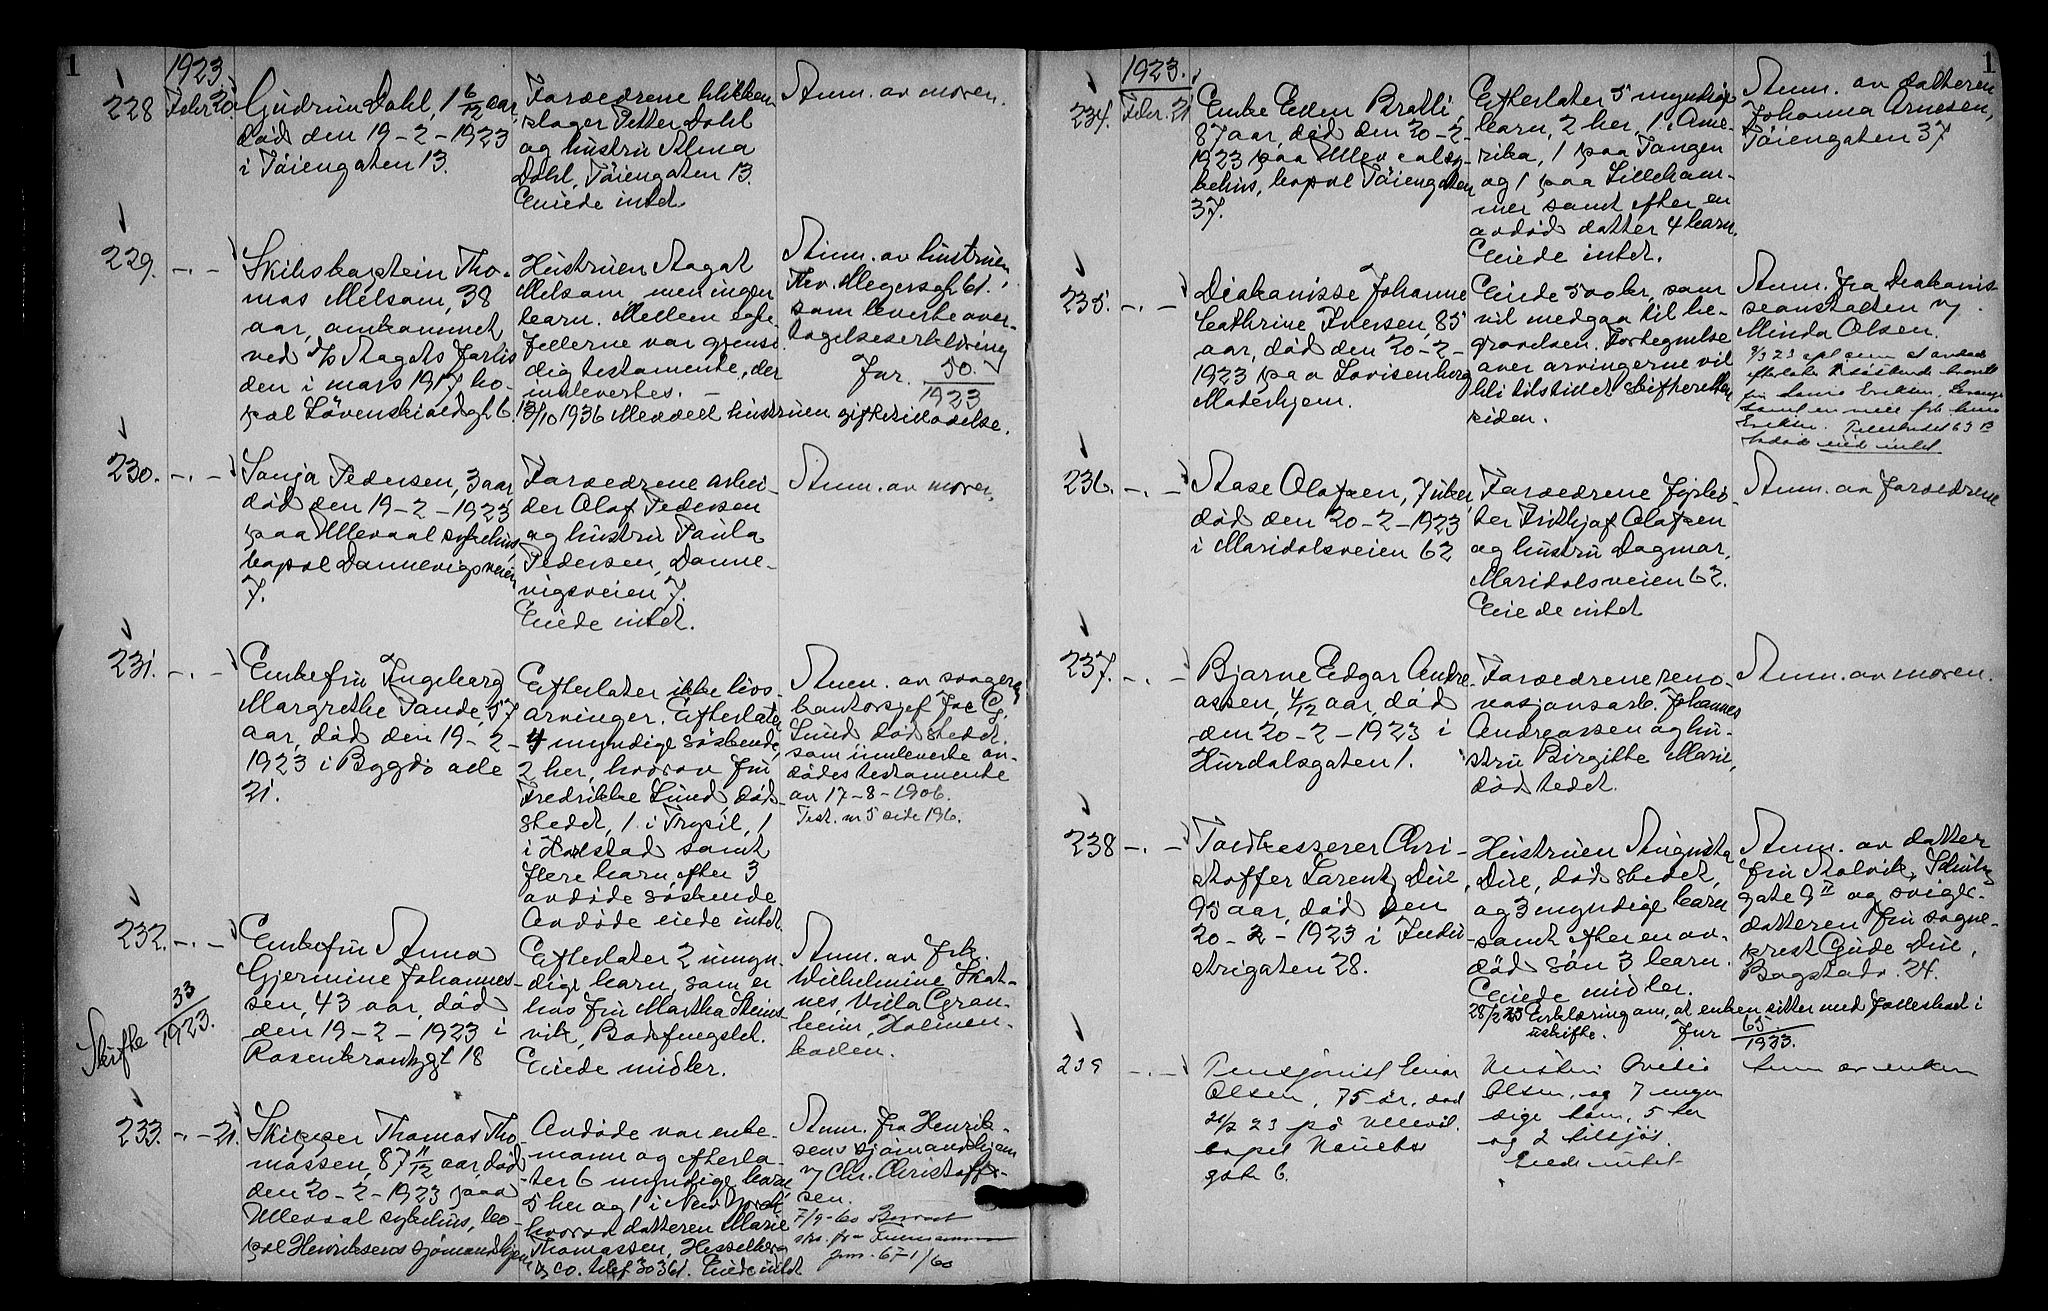 1
1923.
228 Febr 20. Gudrun Dahl, 1 6/12 aar,
død den 19-2-1923
i Tøiengaten 13.
Forældrene blikken-
slager Petter Dahl
og hustru Alma
Dahl, Tøiengaten 13.
Eiede intet.
Anm. av moren.
229. -.- Skibskaptein Tho-
mas Melsom, 38
aar, omkommet
ved d/s Aagots forlis
den i mars 1917, bo-
pæl Løvenskioldsgt. 6.
Hustruen Aagot
Melsom, men ingen
barn. Mellem egte-
fellerne var gjensi-
dig testamente, der
innlevertes. -
Anm. av hustruen
Thv. Meyersgt. 61,
som leverte over-
tagelseserklæring
Jnr. 50.
1923
13/10 1936 Meddelt hustruen giftetilladelse.
230. -.- Sonja Pedersen, 3 aar,
død den 19-2-1923
paa Ullevaal sykehus,
bopæl Dannevigsveien
7.
Forældrene arbei-
der Olaf Pedersen
og hustru Paula
Pedersen, Danne-
vigsveien 7.
Eiede intet.
Anm. av moren.
231. -.- Enkefru Ingeborg
Margrethe Pande, 57
aar, død den 19-2-
1923 i Bygdø alle
21.
Efterlater ikke livs-
arvinger. Efterlater
4 myndige søskende,
2 her, hvorav fru
Fredrikke Lund, død-
stedet, 1 i Trysil, 1
i Harstad samt
flere barn efter 3
avdøde søskende
Avdøde eiede intet.
Anm. av svogeren
kontorsjef Joe G.
Lund dødstedet,
som innleverte av-
dødes testamente
av 17-8-1906.
Test. nr 5 side 196.
232. -.- Enkefru Anna
Gjermine Johannes-
sen, 43 aar, død
den 19-2-1923 i
Rosenkrantzgt 18
Efterlater 2 umyn-
dige barn, som er
hos fru Martha Steins-
vik, Bodfengslet.
Eiede midler.
Anm. av frk.
Wilhelmine Skot-
nes, Villa Gran-
heim, Holmen-
kollen.
Skifte 33
1923.
233. -.- 21. Skipper Thomas Tho-
massen, 87 11/12 aar, død
den 20-2-1923 paa
Ullevaal sykehus, bo-
pæl Henriksens sjømandshjem
Avdøde var enke-
mann og efterla-
ter 6 myndige barn,
5 her og 1 i New York
hvorav datteren Marie
Thomassen, Hesselberg
& Co. telef 30361. Eiede intet
Anm. fra Henrik-
sens sjømandshjem
v/ Chr. Christoffer-
sen.
7/9-60
jnr. 67-1/60
1
1923.
234. Febr. 21. Enke Ellen Bratli,
87 aar, død den 20-2-
1923 paa Ullev. alders-
hjem, bopæl Tøiengaten
37.
Efterlater 5 myndige
barn, 2 her, 1 i Ame-
rika, 1 paa Tangen
og 1 paa Lilleham-
mer samt efter en
avdød datter 4 barn.
Eiede intet.
Anm. av datteren
Johanna Arnesen,
Tøiengaten 37.
235. -.- Diakonisse Johanne
Cathrine Iversen, 85
aar, død den 20-2-
1923 paa Lovisenberg
Moderhjem.
Eiede 500 kr, som
vil medgaa til be-
gravelsen. Fortegnelse
over arvingerne vil
bli tilstillet skifteretten
siden.
Anm. fra Diakonis-
seanstalten v/
Minda Olsen.
efterlater
Avdøde eied intet
236. -.- Aase Olafsen, 7 uker,
død den 20-2-1923
i Maridalsveien 62
Forældrene fyrbø-
ter Frithjof Olafsen
og hustru Dagmar,
Maridalsveien 62.
Eiede intet
Anm. av forældrene
237. -.- Bjarne Edgar Andre-
assen, 4/12 aar, død
den 20-2-1923 i
Hurdalsgaten 1.
Forældrene reno-
vasjonsarb. Johannes
Andreassen og hu-
stru Birgitte Marie,
dødstedet.
Anm. av moren.
238 -.- Toldkasserer Chri-
stoffer Larentz Due,
95 aar, død den
20-2-1923 i Indu-
strigaten 28.
Hustruen Augusta
Due, dødstedet,
og 3 myndige barn
samt efter en av-
død søn 3 barn.
Eiede midler.
Anm. av datter
fru Rolvik, Schultz
gate 9 II og sviger-
datteren fru sogne-
prest Gude Due,
Bogstadv. 24.
28/2 23 Erklæring om, at enken sitter med fellesboet i
uskifte. Jnr 65
1923.
239 -.- Pensjonist Einar
Olsen, 75 år, død
20/2 23 på Ullevål.
bopæl
gate 6.
Hustru
Olsen, og 7 myn-
dige barn, 5 her
og 2 tilsjøs.
Eiede intet
Anm av enken